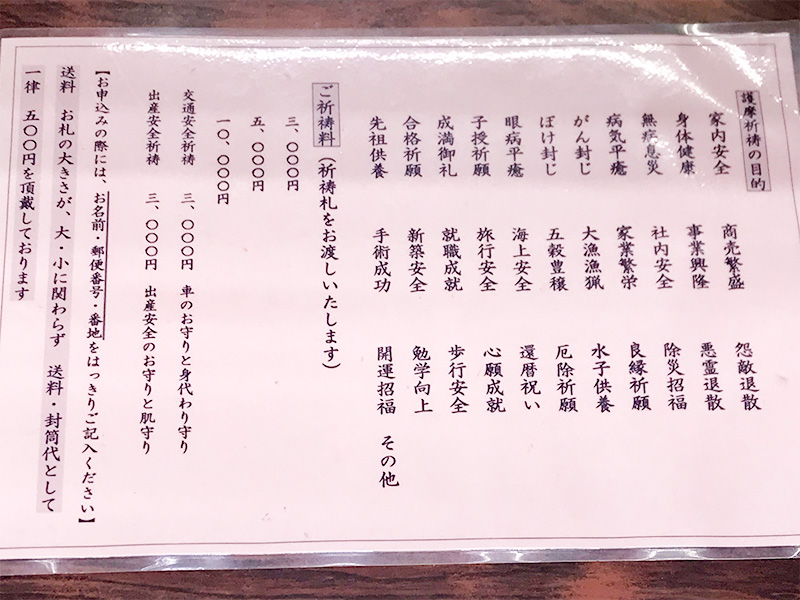 護摩祈祷の目的
家内安全 商売繁盛 怨敵退散
身体健康 事業興隆 悪霊退散
無病息災 社内安全 除災招福
病気平癒 家業繁栄 良縁祈願
がん封じ 大漁漁猟 水子供養
ぼけ封じ 五穀豊穣 厄除祈願
眼病平癒 海上安全 還暦祝い
子授祈願 旅行安全 心願成就
成満御礼 就職成就 歩行安全
合格祈願 新築安全 勉学向上
先祖供養 手術成功 開運招福 その他
ご祈祷料(祈祷札をお渡しいたします)
三、〇〇〇円
五、〇〇〇円
一〇、〇〇〇円
交通安全祈祷 三、〇〇〇円 車のお守りと身代わり守り
出産安全祈祷 三、〇〇〇円 出産安全のお守りと肌守り
【お申込みの際には、お名前・郵便番号・番地をはっきりご記入ください】
送料 お札の大きさが、大・小に関わらず 送料・封筒代として
一律 五〇〇円を頂戴しております